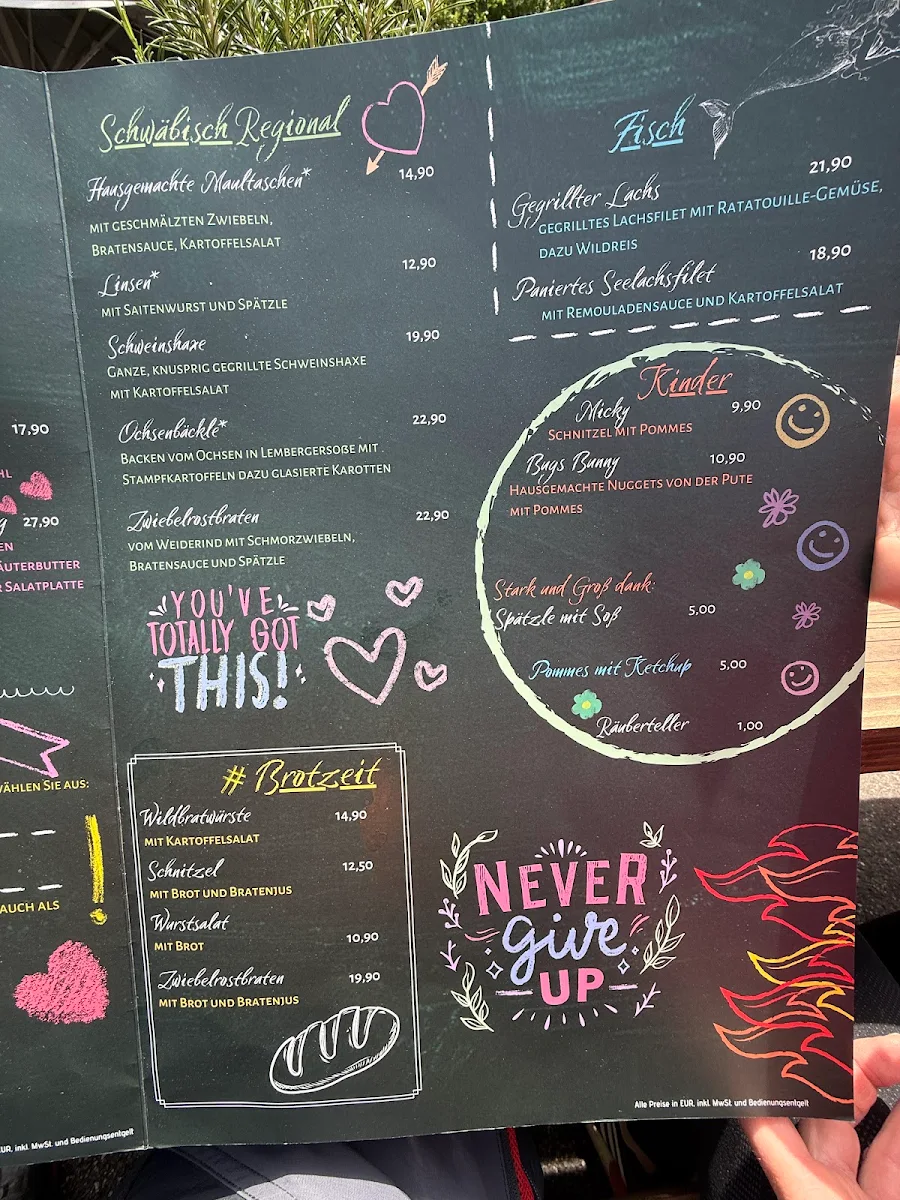 17,90
27,90
SALATPLATTE
WÄHLEN SIE AUS:
AUCH ALS
EUR, inkl. MwSt. und Bedienungsentgelt
Schwäbisch Regional
Hausgemachte Maultaschen* 14,90
MIT GESCHMÄLZTEN ZWIEBELN,
BRATENSAUCE, KARTOFFELSALAT
Linsen* 12,90
MIT SAITENWURST UND SPÄTZLE
Schweinshaxe 19,90
GANZE, KNUSPRIG GEGRILLTE SCHWEINSHAXE
MIT KARTOFFELSALAT
Ochsenbäckle* 22,90
BACKEN VOM OCHSEN IN LEMBERGERSOßE MIT
STAMPFKARTOFFELN DAZU GLASIERTE KAROTTEN
Zwiebelrostbraten 22,90
VOM WEIDERIND MIT SCHMORZWIEBELN,
BRATENSAUCE UND SPÄTZLE
YOU'VE
TOTALLY GOT
THIS!
# Brotzeit
Wildbratwürste 14,90
MIT KARTOFFELSALAT
Schnitzel 12,50
MIT BROT UND BRATENJUS
Wurstsalat
MIT BROT 10,90
Zwiebelrostbraten 19,90
MIT BROT UND BRATENJUS
Fisch
Gegrillter Lachs 21,90
GEGRILLTES LACHSFILET MIT RATATOUILLE-GEMÜSE,
DAZU WILDREIS
Paniertes Seelachsfilet 18,90
MIT REMOULADENSAUCE UND KARTOFFELSALAT
Kinder
Micky 9,90
SCHNITZEL MIT POMMES
Bugs Bunny 10,90
HAUSGEMACHTE NUGGETS VON DER PUTE
MIT POMMES
Stark und Groß dank:
Spätzle mit Soß 5,00
Pommes mit Ketchup 5,00
Räuberteller 1,00
NEVER
give
UP
Alle Preise in EUR, inkl. MwSt. und Bedienungsentgelt